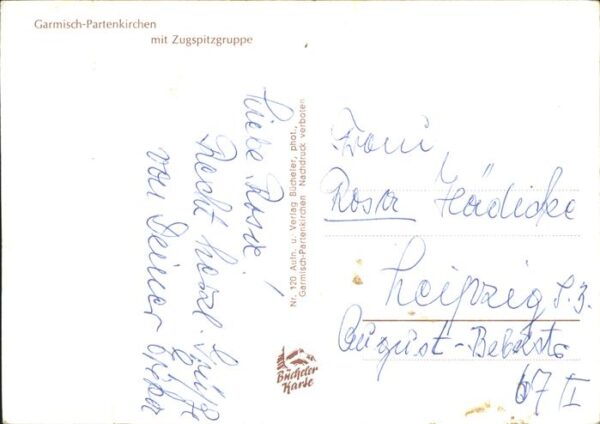 Garmisch-Partenkirchen
mit Zugspitzgruppe
Liebe Rosa!
Recht herzl. Grüße
von Deiner
Nr. 120 Aufn. u. Verlag Bücheler, phot.,
Garmisch-Partenkirchen Nachdruck verboten
Frau
Rosa Hädicke
Leipzig S. 3.
August-Bebelstr
67 II
Bücheler
Karte